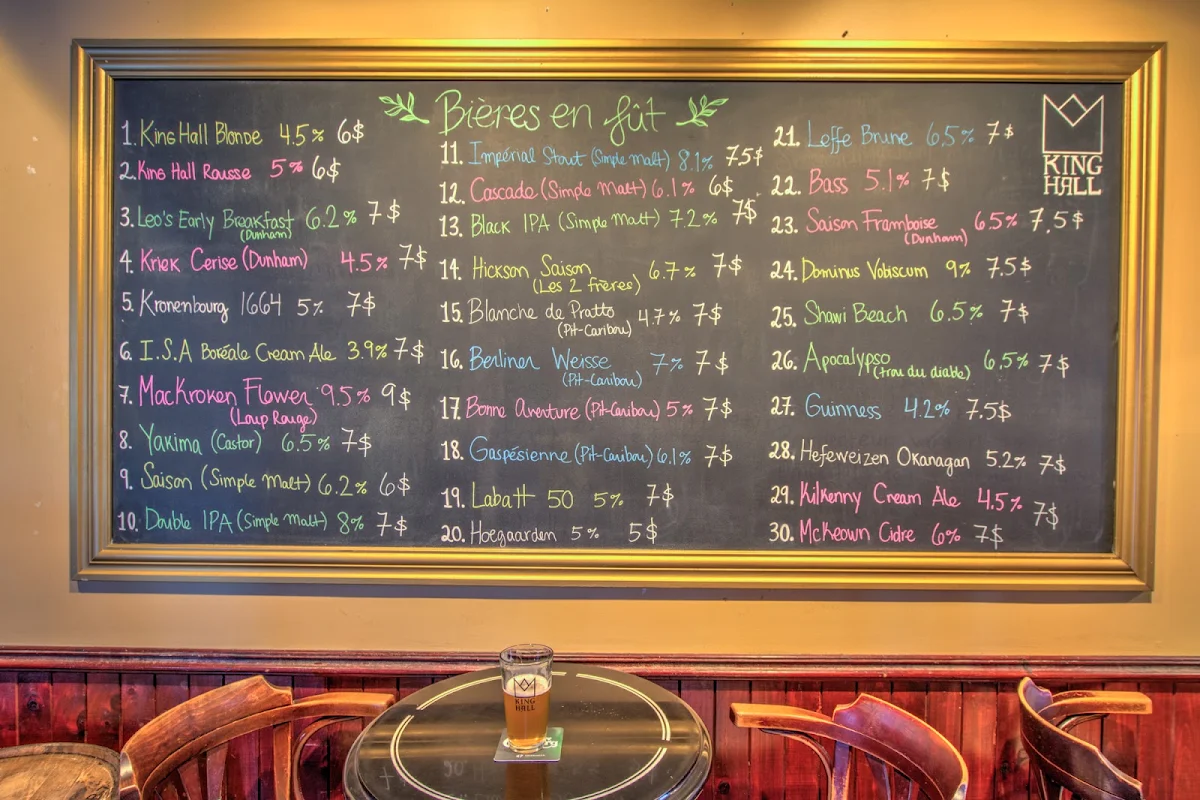 Bières en fût
1. King Hall Blonde 4.5% 6$
2. King Hall Rousse 5% 6$
3. Leo's Early Breakfast 6.2% 7$
(Dunham)
4. Kriek Cerise (Dunham) 4.5% 7$
5. Kronenbourg 1664 5% 7$
6. I.S.A Boréale Cream Ale 3.9% 7$
7. MacKroken Flower 9.5% 9$
(Loup Rouge)
8. Yakima (Castor) 6.5% 7$
9. Saison (Simple Malt) 6.2% 6$
10. Double IPA (Simple Malt) 8% 7$
11. Impérial Stout (Simple Malt) 8.1% 7.5$
12. Cascade (Simple Malt) 6.1% 6$
13. Black IPA (Simple Malt) 7.2% 7$
14. Hickson Saison 6.7% 7$
(Les 2 frères)
15. Blanche de Pratto 4.7% 7$
(Pit-Caribou)
16. Berliner Weisse 7% 7$
(Pit-Caribou)
17. Bonne Aventure (Pit-Caribou) 5% 7$
18. Gaspésienne (Pit-Caribou) 6.1% 7$
19. Labatt 50 5% 7$
20. Hoegaarden 5% 5$
21. Leffe Brune 6.5% 7$
22. Bass 5.1% 7$
23. Saison Framboise 6.5% 7.5$
(Dunham)
24. Dominus Vobiscum 9% 7.5$
25. Shawi Beach 6.5% 7$
26. Apocalypso 6.5% 7$
(trou du diable)
27. Guinness 4.2% 7.5$
28. Hefeweizen Okanagan 5.2% 7$
29. Kilkenny Cream Ale 4.5% 7$
30. McKeown Cidre 6% 7$
KING
HALL
KING
HALL